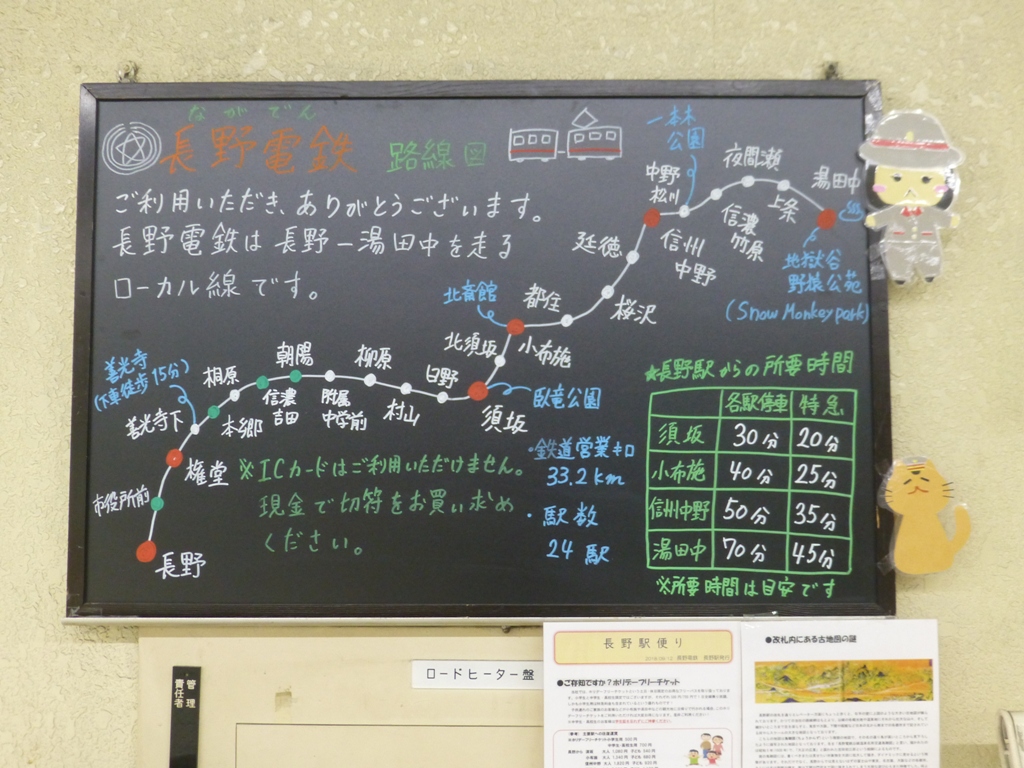 ながでん
長野電鉄 路線図
ご利用いただき、ありがとうございます。
長野電鉄は長野ー湯田中を走る
ローカル線です。
一本木
公園
夜間瀬
湯田中
中野
松川
上条
信濃
竹原
信州
中野
延徳
地獄谷
野猿公苑
(Snow Monkey park)
北斎館
都住
桜沢
北須坂
小布施
善光寺
(下車徒歩15分)
朝陽
柳原
桐原
日野
臥竜公園
須坂
信濃
吉田
附属
中学前
村山
善光寺下
本郷
権堂
市役所前
長野
※ICカードはご利用いただけません。
現金で切符をお買い求め
ください。
・鉄道営業キロ
33.2km
・駅数
24駅
★長野駅からの所要時間
各駅停車 特急
須坂 30分 20分
小布施 40分 25分
信州中野 50分 35分
湯田中 70分 45分
※所要時間は目安です
管理
責任者
ロードヒーター盤
長野駅便り
●ご存知ですか?ホリデーフリーチケット
●改札内にある古地図の謎